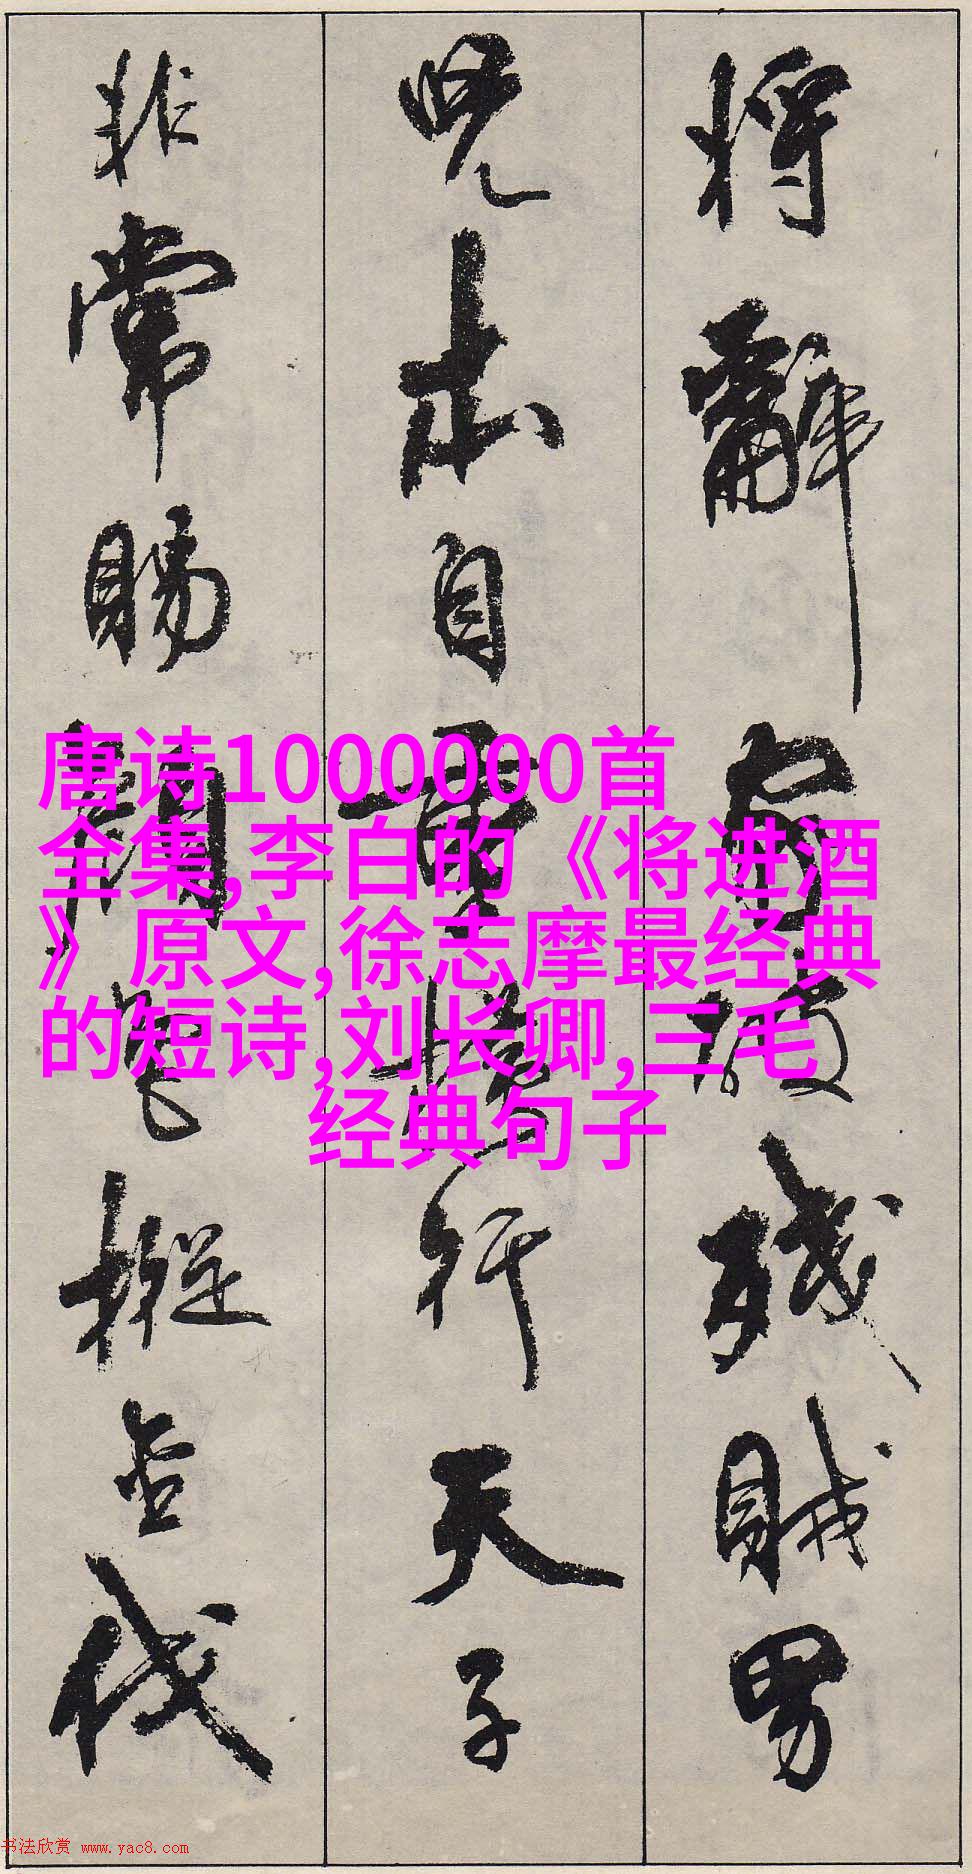 将辭家破殘賊男
兒本自重橫行天子
非常賜顏色摐金伐
唐诗1000000首
全集,李白的《将进酒
》原文,徐志摩最经典
的短诗,刘长卿,三毛
经典句子
书法欣赏 www.yac8.com